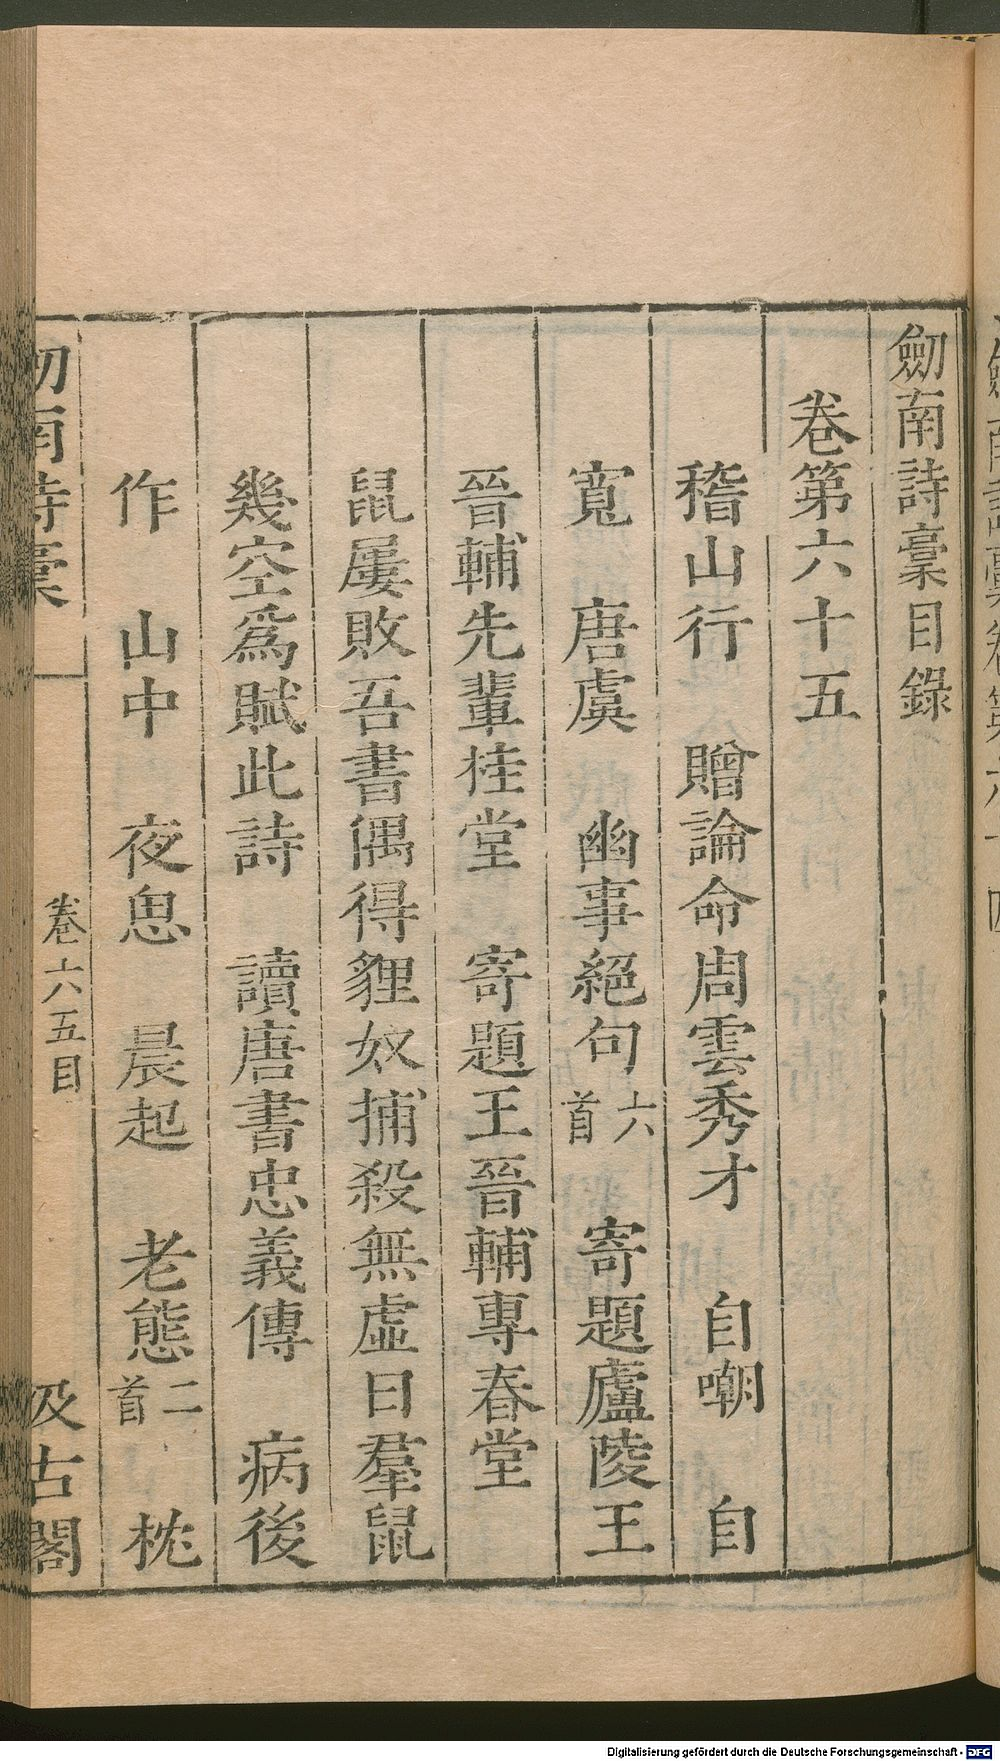 劒南詩稾目錄
卷第六十五
稽山行　贈論命周雲秀才　自嘲　自
寬　唐虞　幽事絕句六首　寄題廬陵王
晉輔先輩桂堂　寄題王晉輔專春堂
鼠屢敗吾書偶得貍奴捕殺無虛日羣鼠
幾空爲賦此詩　讀唐書忠義傳　病後
作　山中　夜思　晨起　老態二首　枕
劒南詩稾　卷六五目　汲古閣
Digitalisierung gefördert durch die Deutsche Forschungsgemeinschaft - DFG